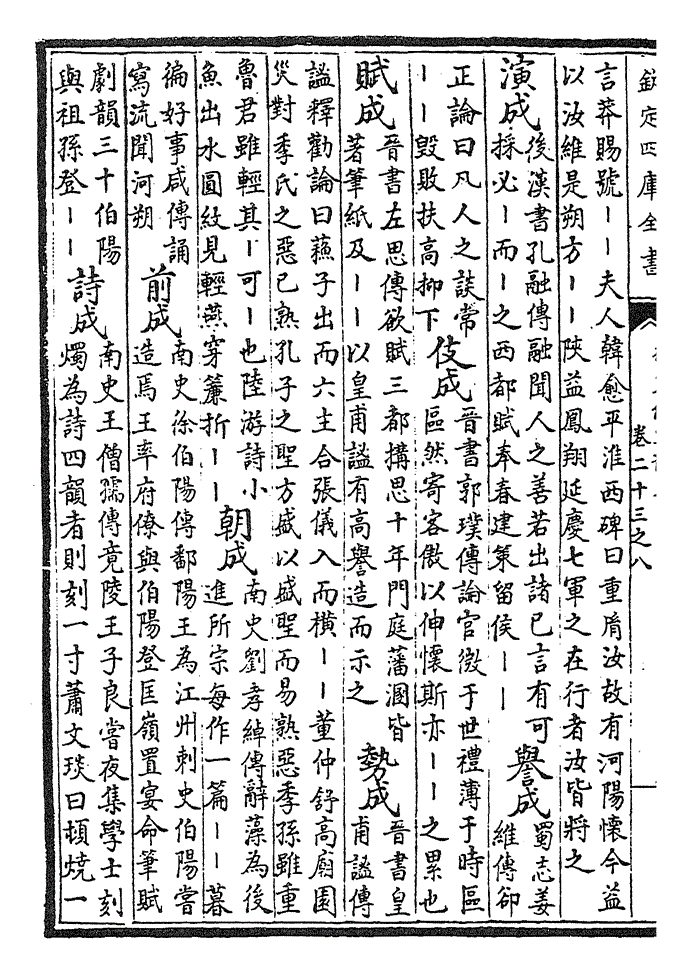 欽定四庫全書
卷二十三之八
言莽賜號丨丨夫人韓愈平淮西碑曰重𦙍汝故有河陽懷今益
以汝維是朔方丨丨陝益鳳翔延慶七軍之在行者汝皆將之
演成
後漢書孔融傳融聞人之善若出諸已言有可
採必丨而丨之西都賦奉春建策留侯丨丨
譽成
蜀志姜
維傳卻
正論曰凡人之談常
丨丨毀敗扶高抑下
伎成
晉書郭璞傳論官微于世禮薄于時區
區然寄客傲以伸懷斯亦丨丨之累也
賦成
晉書左思傳欲賦三都搆思十年門庭藩溷皆
著筆紙及丨丨以皇甫謐有高譽造而示之
勢成
晉書皇
甫謐傳
謐釋勸論曰蘓子出而六主合張儀入而橫丨丨董仲舒高廟園
災對季氏之惡已熟孔子之聖方盛以盛聖而易熟惡季孫雖重
魯君雖輕其丨可丨也陸游詩小
魚出水圓紋見輕燕穿簾折丨丨
朝成
南史劉孝綽傳辭藻為後
進所宗每作一篇丨丨暮
徧好事咸傳誦
寫流聞河朔
前成
南史徐伯陽傳鄱陽王為江州刺史伯陽嘗
造焉王率府僚與伯陽登匡嶺置宴命筆賦
劇韻三十伯陽
與祖孫登丨丨
詩成
南史王僧孺傳竟陵王子良嘗夜集學士刻
燭為詩四韻者則刻一寸蕭文琰曰頓燒一